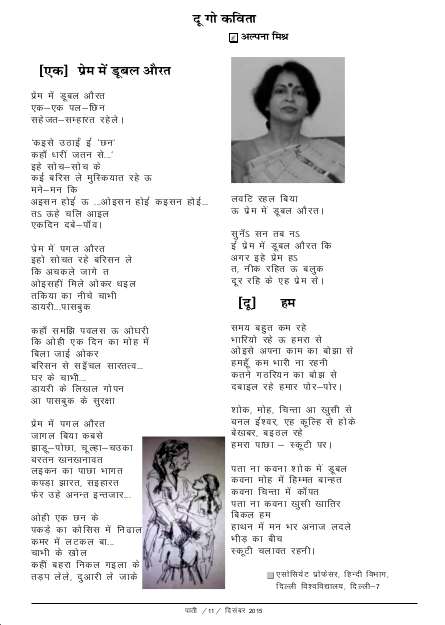 दू गो कविता
अल्पना मिश्र
[एक] प्रेम में डूबल औरत
प्रेम में डूबल औरत
एक–एक पल–छिन
सहेजत–सम्हारत रहेले।
'कइसे उठाईं ई 'छन'
कहाँ धरीं जतन से...'
इहे सोच–सोच के
कई बरिस ले मुस्कियात रहे ऊ
मने–मन कि
अइसन होई ऊ ...ओइसन होई कइसन होई...
तऽ ऊहे चलि आइल
एकदिन दबे–पाँव।
प्रेम में पगल औरत
इहो सोचत रहे बरिसन ले
कि अचकले जागे त
ओइसहीं मिले ओकर धइल
तकिया का नीचे चाभी
डायरी...पासबुक
कहाँ समझि पवलस ऊ ओघरी
कि ओही एक दिन का मोह में
बिला जाई ओकर
बरिसन से सइँचल सारतत्व...
घर के चाभी...
डायरी के लिखल गोपन
आ पासबुक के सुरक्षा
प्रेम में पगल औरत
जागल बिया कबसे
झाडू–पोंछा, चूल्हा–चउका
बरतन खनखनावत
लइकन का पाछा भागत
कपड़ा झारत, सइहारत
फेर उहे अनन्त इन्तजार...
ओही एक छन के
पकड़े का कोसिस में निढाल
कमर में लटकल बा...
चाभी के खोल
कहीं बहरा निकल गइला के
तड़प लेले, दुआरी ले जाके
लवटि रहल बिया
ऊ प्रेम में डूबल औरत।
सुनेंऽ सन तब नऽ
ई प्रेम में डूबल औरत कि
अगर इहे प्रेम हऽ
त, नीक रहित ऊ बलुक
दूर रहि के एह प्रेम से।
[दू] हम
समय बहुत कम रहे
भारियो रहे ऊ हमरा से
ओइसे अपना काम का बोझा से
हमहूँ कम भारी ना रहनी
कतने गठरियन का बोझ से
दबाइल रहे हमार पोर–पोर।
शोक, मोह, चिन्ता आ खुसी से
बनल ईश्वर, एह कूल्हि से होके
बेखबर, बइठल रहे
हमरा पाछा – स्कूटी पर।
पता ना कवना शोक में डूबल
कवना मोह में हिम्मत बान्हत
कवना चिन्ता में काँपत
पता ना कवना खुसी खातिर
बिकल हम
हाथन में मन भर अनाज लदले
भीड़ का बीच
स्कूटी चलावत रहनी।
एसोसियेट प्रोफेसर, हिन्दी विभाग,
दिल्ली विश्वविद्यालय, दिल्ली–7
पाती / 11 / दिसंबर 2015